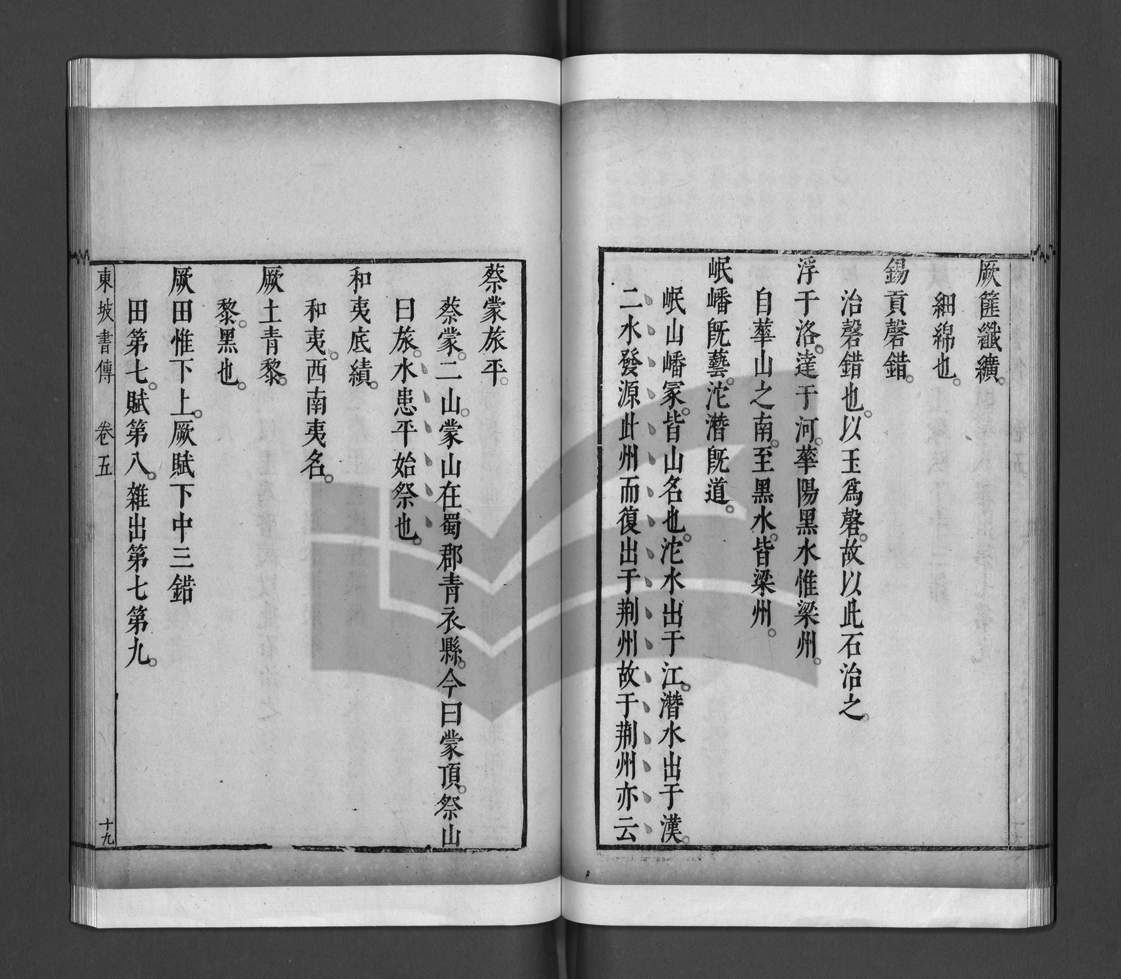 厥篚纖纊。
細綿也。
錫貢磬錯。
治磬錯也。以玉爲磬。故以此石治之。
浮于洛。達于河。華陽黑水惟梁州。
自華山之南。至黑水。皆梁州。
岷嶓旣藝。沱潛旣道。
岷山嶓冢。皆山名也。沱水出于江。潛水出于漢。
二水發源此州而復出于荆州故于荆州亦云
蔡蒙旅平。
蔡蒙。二山。蒙山在蜀郡青衣縣。今曰蒙頂。祭山
曰旅。水患平始祭也。
和夷底績。
和夷。西南夷名。
厥土青黎。
黎。黑也。
厥田惟下上。厥賦下中三錯
田第七。賦第八。雜出第七第九。
東坡書傳 卷五 十九